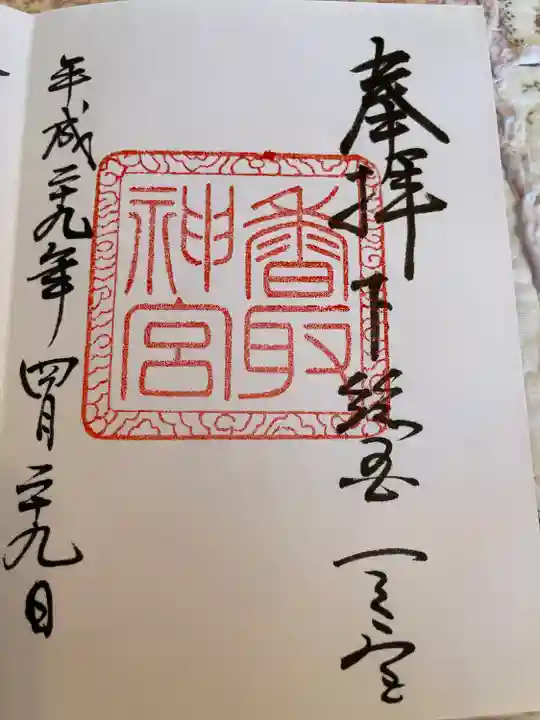 奉拝 下総国 一之宮
香取
神宮
平成二十九年四月二十九日